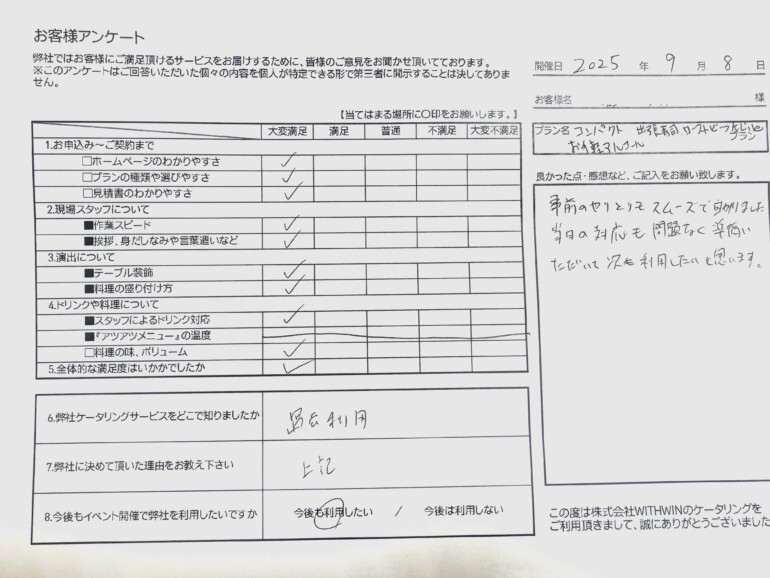 お客様アンケート
弊社ではお客様にご満足頂けるサービスをお届けするために、皆様のご意見をお聞かせ頂いております。
※このアンケートはご回答いただいた個々の内容を個人が特定できる形で第三者に開示することは決してありま
せん。
開催日 2025 年 9 月 8 日
お客様名 様
プラン名 コンパクト 出張寿司 ローストビーフ
お手軽 プラン
【当てはまる場所に〇印をお願いします。】
大変満足 満足 普通 不満足 大変不満足
1.お申込み～ご契約まで
□ホームページのわかりやすさ ✓
□プランの種類や選びやすさ ✓
□見積書のわかりやすさ ✓
2.現場スタッフについて
■作業スピード ✓
■挨拶、身だしなみや言葉遣いなど ✓
3.演出について
■テーブル装飾 ✓
■料理の盛り付け方 ✓
4.ドリンクや料理について
■スタッフによるドリンク対応 ✓
■『アツアツメニュー』の温度
□料理の味、ボリューム ✓
5.全体的な満足度はいかかでしたか ✓
6.弊社ケータリングサービスをどこで知りましたか 利用
7.弊社に決めて頂いた理由をお教え下さい 上記
8.今後もイベント開催で弊社を利用したいですか 今後も利用したい / 今後は利用しない
良かった点・感想など、ご記入をお願い致します。
事前のやりとりもスムーズで助かりました
当日の対応も問題なく準備い
ただいて次も利用したいと思います。
この度は株式会社WITHWINのケータリングを
ご利用頂きまして、誠にありがとうございました